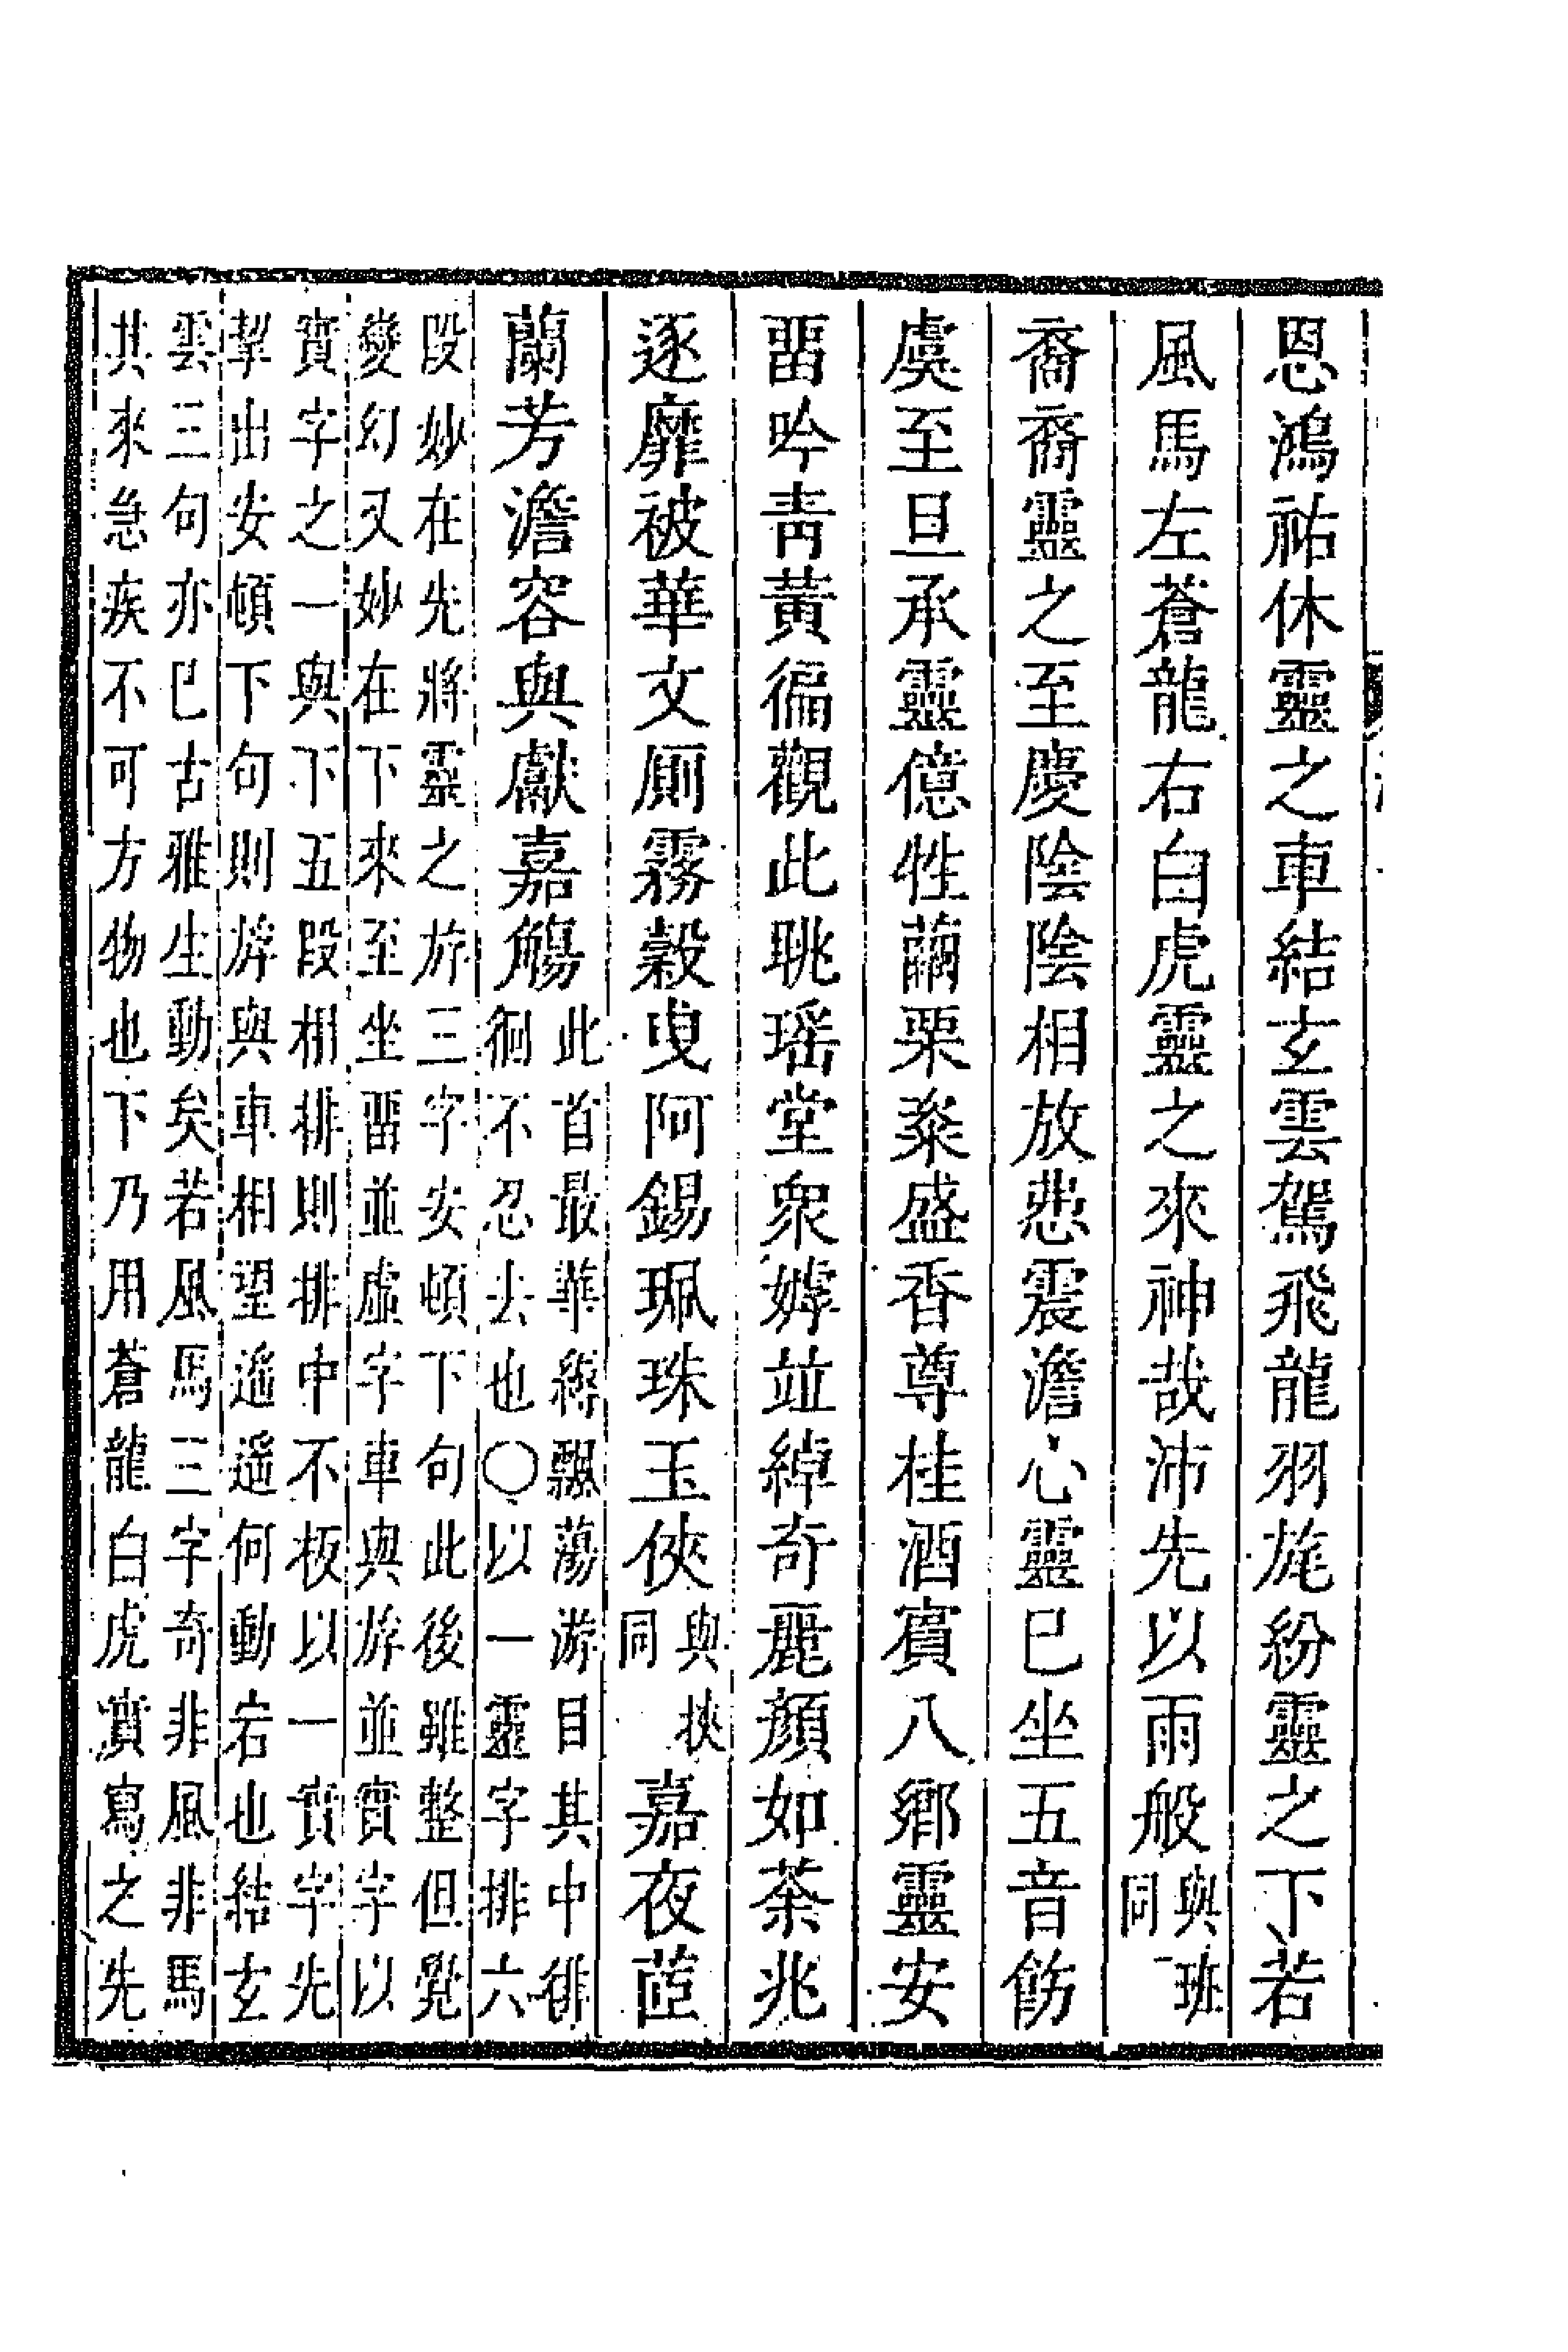 恩鴻祐休靈之車結玄雲駕飛龍羽旄紛靈之下若
風馬左蒼龍右白虎靈之來神哉沛先以雨般與班同
裔裔靈之至慶陰陰相放悲震澹心靈已坐五音飭
虞至旦承靈億牲繭栗粢盛香尊桂酒賓八鄉靈安
畱吟青黃徧觀此眺瑶堂衆嫭竝綽奇麗顏如荼兆
逐靡被華文厠霧縠曳阿錫珮珠玉俠與挾同嘉夜茝
蘭芳澹容與獻嘉觴
此首最華縟飄蕩游目其中徘
徊不忍去也○以一靈字排六
段妙在先將靈之斿三字安頓下句此後雖整但覺
變幻又妙在下來至坐畱並虛字車與斿並實字以
實字之一與下五段相排則排中不板以一實字先
挈出安頓下句則斿與車相望遙遙何動宕也結玄
雲三句亦已古雅生動矣若風馬三字奇非風非馬
其來急疾不可方物也下乃用蒼龍白虎實寫之先